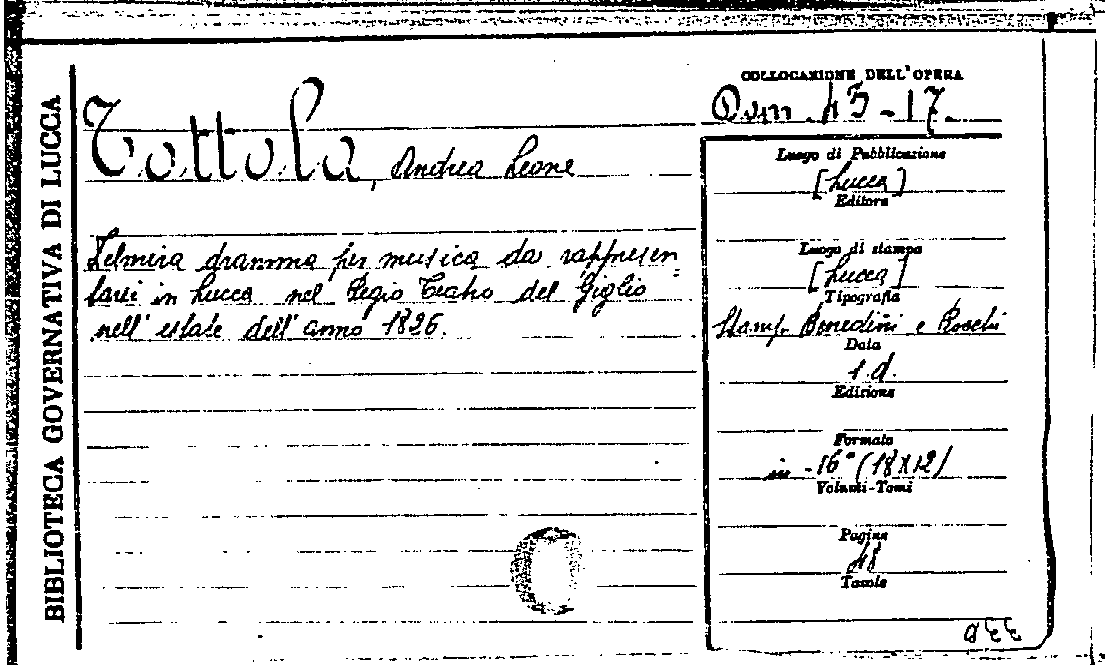 BIBLIOTECA GOVERNATIVA DI LUCCA
Tottola, Andrea Leone
Zelmira dramma per musica da rappresen-
tarsi in Lucca nel Regio Teatro del Giglio
nell'estate dell'anno 1826.
COLLOCAZIONE DELL'OPERA
Dom. 43-17.
Luogo di Pubblicazione
[Lucca]
Editore
Luogo di stampa
[Lucca]
Tipografia
Stamp. Benedini e Rocchi
Data
s.d.
Edizione
Formato
in-16° (18X12)
Volumi-Tomi
Pagine
48
Tavole